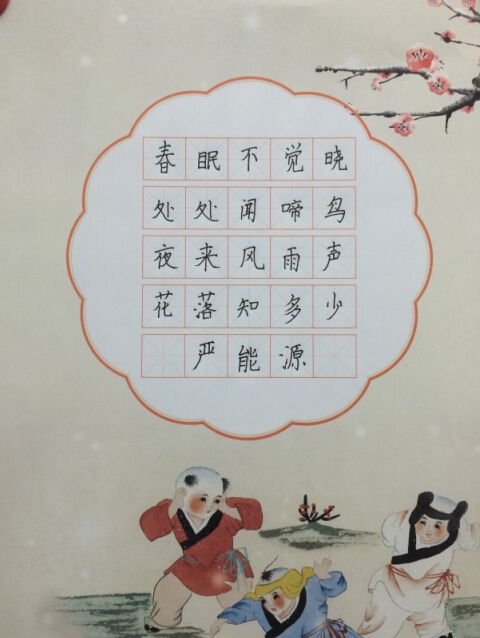 春眠不觉晓
处处闻啼鸟
夜来风雨声
花落知多少
严能源